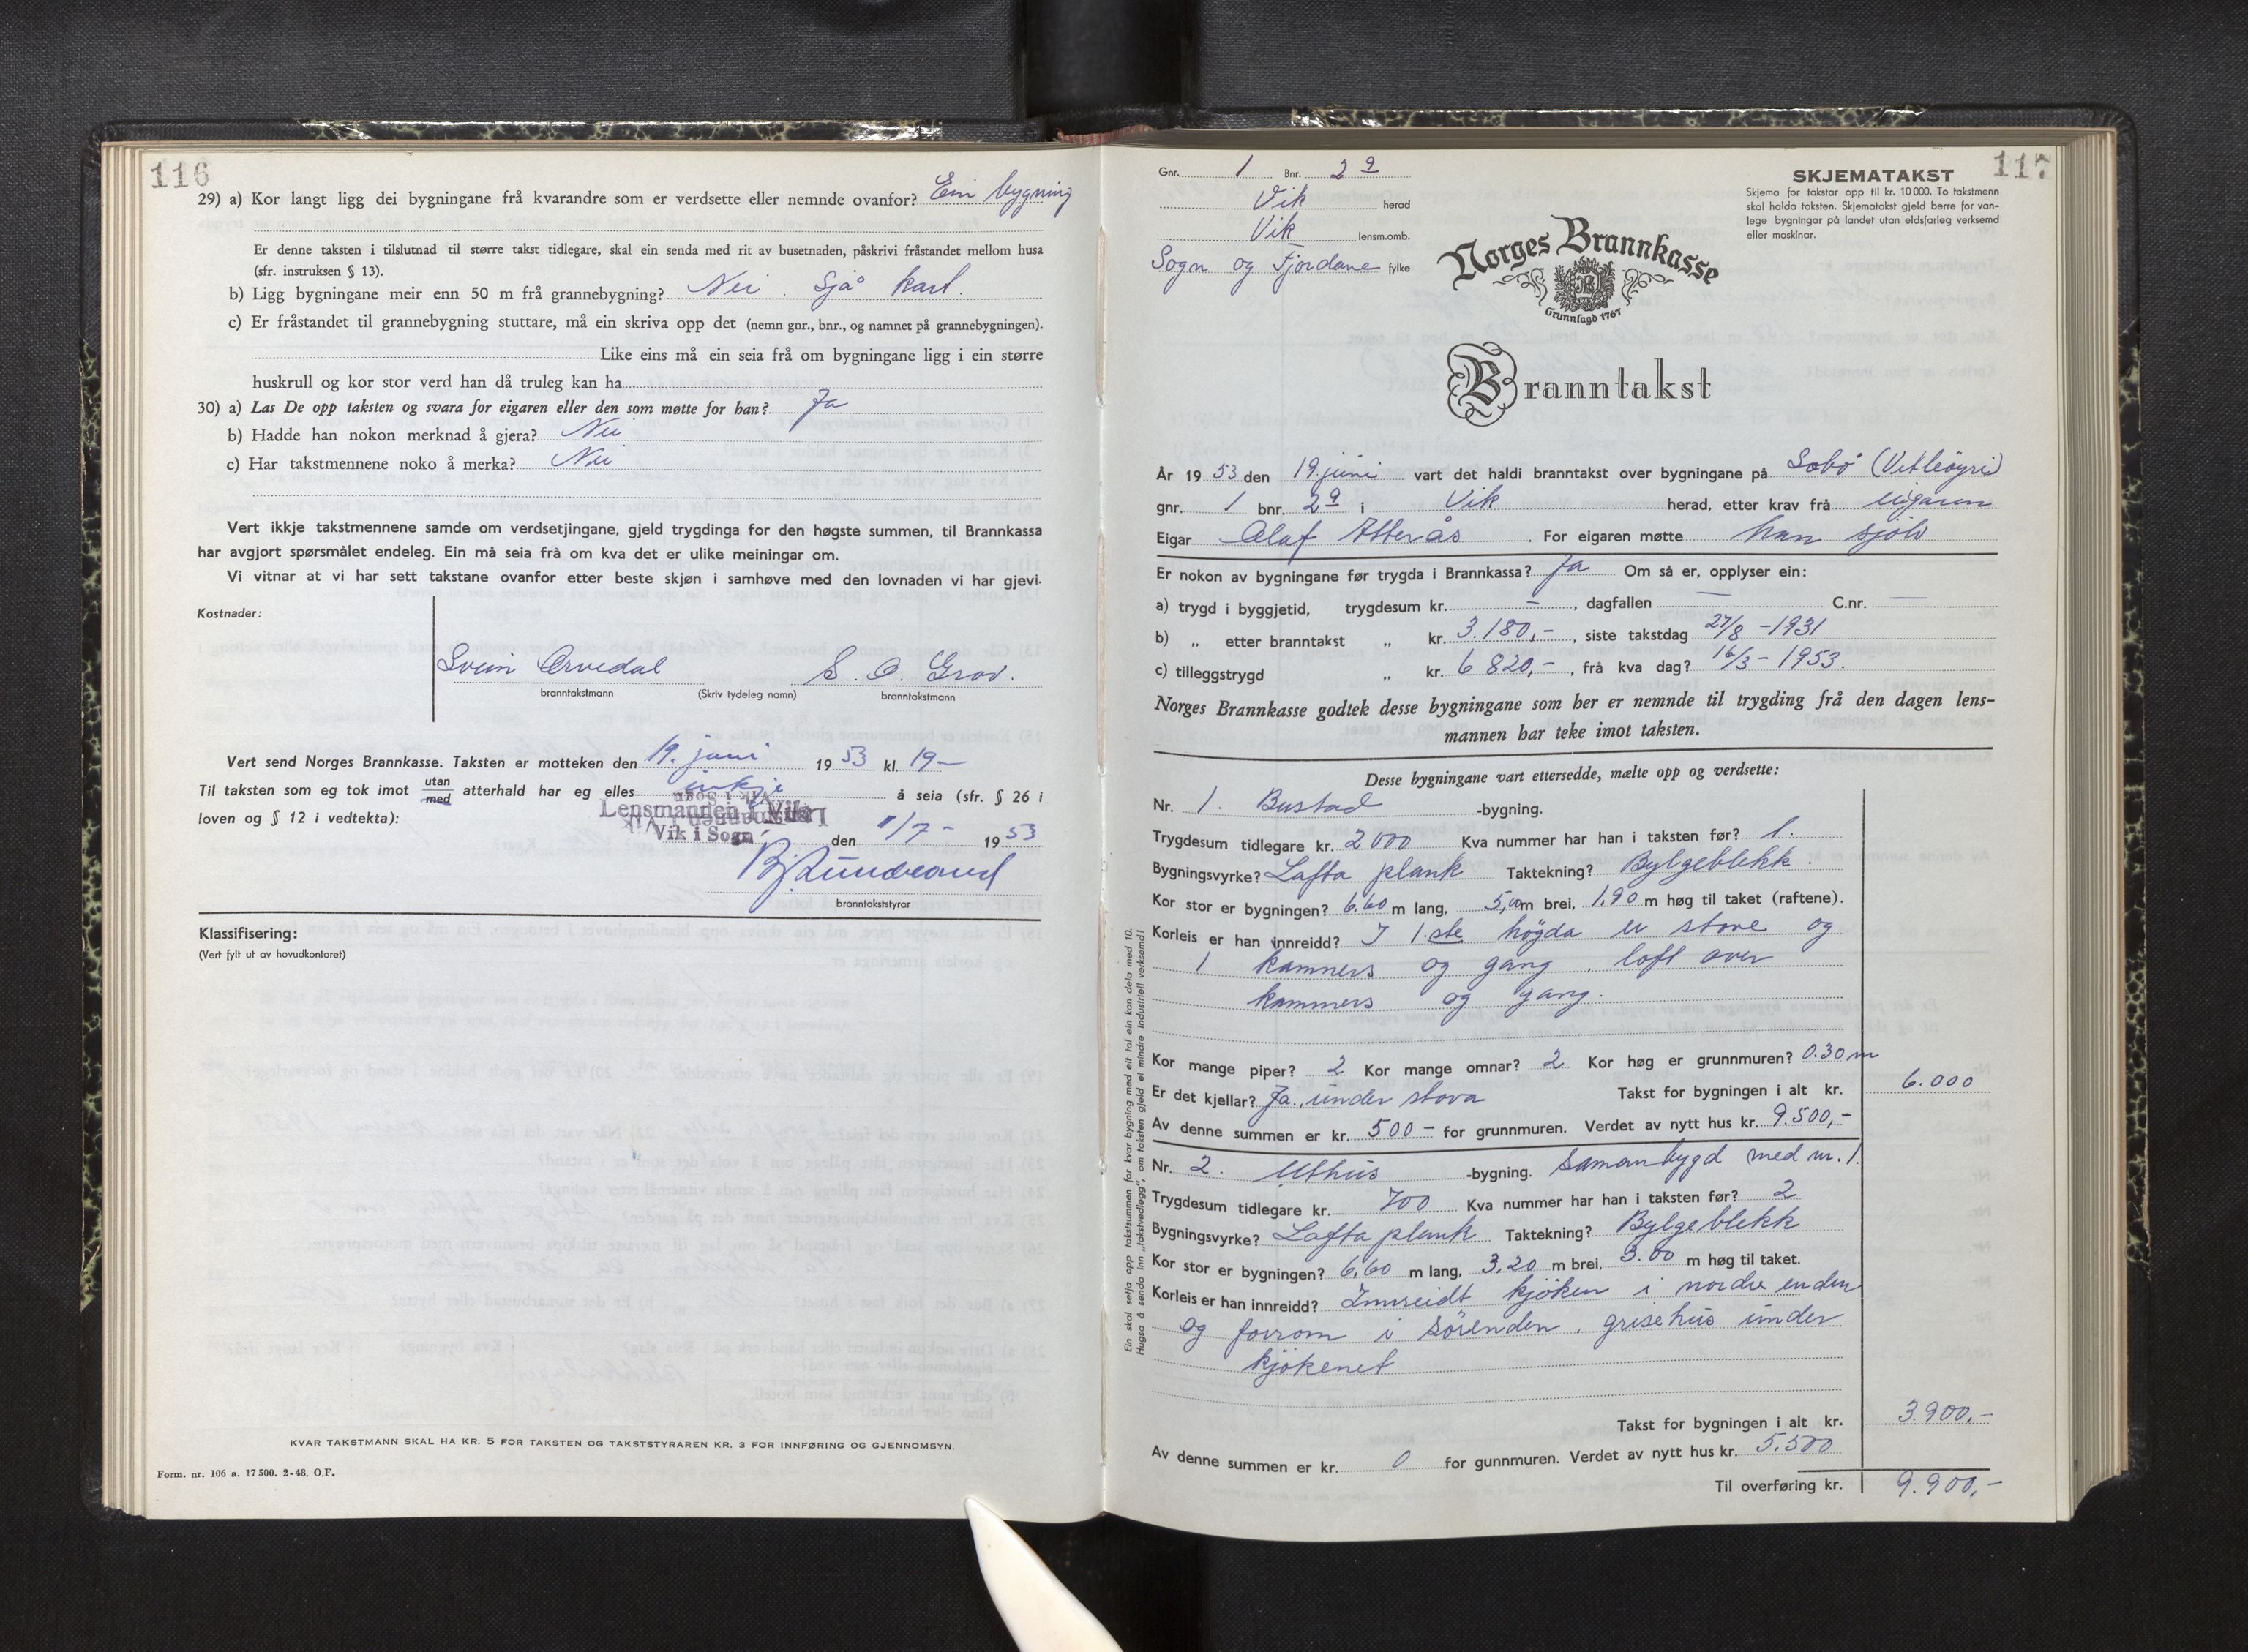 116
29) a) Kor langt ligg dei bygningane frå kvarandre som er verdsette eller nemnde ovanfor? Ein bygning
Er denne taksten i tilslutnad til større takst tidlegare, skal ein senda med rit av busetnaden, påskrivi fråstandet mellom husa
(sfr. instruksen § 13).
b) Ligg bygningane meir enn 50 m frå grannebygning? Nei. Sjå kart.
c) Er fråstandet til grannebygning stuttare, må ein skriva opp det (nemn gnr., bnr., og namnet på grannebygningen).
Like eins må ein seia frå om bygningane ligg i ein større
huskrull og kor stor verd han då truleg kan ha
30) a) Las De opp taksten og svara for eigaren eller den som møtte for han? Ja
b) Hadde han nokon merknad å gjera? Nei
c) Har takstmennene noko å merka? Nei
Vert ikkje takstmennene samde om verdsetjingane, gjeld trygdinga for den høgste summen, til Brannkassa
har avgjort spørsmålet endeleg. Ein må seia frå om kva det er ulike meiningar om.
Vi vitnar at vi har sett takstane ovanfor etter beste skjøn i samhøve med den lovnaden vi har gjevi.
Kostnader:
Svein Arvedal S. O. Grov.
branntakstmann (Skriv tydeleg namn) branntakstmann
Vert send Norges Brannkasse. Taksten er motteken den 19. juni 1953 kl. 19—
Til taksten som eg tok imot utan med atterhald har eg elles inkje å seia (sfr. § 26 i
loven og § 12 i vedtekta):
Lensmannen i Vik
Vik i Sogn den 1/7 - 1953
branntakststyrar
Klassifisering:
(Vert fylt ut av hovudkontoret)
KVAR TAKSTMANN SKAL HA KR. 5 FOR TAKSTEN OG TAKSTSTYRAREN KR. 3 FOR INNFØRING OG GJENNOMSYN.
Form. nr. 106 a. 17 500. 2-48. O.F.
117
Gnr. 1 Bnr. 2 a
Vik herad
Vik lensm.omb.
Sogn og Fjordane fylke
SKJEMATAKST
Skjema for takstar opp til kr. 10 000. To takstmenn
skal halda taksten. Skjematakst gjeld berre for van-
lege bygningar på landet utan eldsfarleg verksemd
eller maskinar.
Norges Brannkasse
Grunnlagd 1767
Branntakst
År 1953 den 19. juni vart det haldi branntakst over bygningane på Sæbø (Vetleøyri)
gnr. 1 bnr. 2 a i Vik herad, etter krav frå eigaren
Eigar Olaf Atterås. For eigaren møtte han sjølv
Er nokon av bygningane før trygda i Brannkassa? Ja Om så er, opplyser ein:
a) trygd i byggjetid, trygdesum kr. — , dagfallen — C.nr. —
b) „ etter branntakst „ kr. 3.180,- , siste takstdag 27/8 - 1931
c) tilleggstrygd „ kr. 6 820,- , frå kva dag? 16/3 - 1953.
Norges Brannkasse godtek desse bygningane som her er nemnde til trygding frå den dagen lens-
mannen har teke imot taksten.
Desse bygningane vart ettersedde, mælte opp og verdsette:
Nr. 1. Bustad -bygning.
Trygdesum tidlegare kr. 2000 Kva nummer har han i taksten før? 1.
Bygningsvyrke? Lafta plank Taktekning? Bylgeblekk.
Kor stor er bygningen? 6,60 m lang, 5,00 m brei, 1,90 m høg til taket (raftene).
Korleis er han innreidd? I 1.ste högda er stove og
1 kammers og gang. loft over
kammers og gang.
Kor mange piper? 2 Kor mange omnar? 2 Kor høg er grunnmuren? 0.30 m
Er det kjellar? Ja, under stova Takst for bygningen i alt kr. 6.000
Av denne summen er kr. 500 - for grunnmuren. Verdet av nytt hus kr. 9.500,-
Nr. 2. Uthus -bygning. Samanbygd med nr. 1.
Trygdesum tidlegare kr. 700 Kva nummer har han i taksten før? 2
Bygningsvyrke? Lafta plank Taktekning? Bylgeblekk
Kor stor er bygningen? 6,60 m lang, 3,20 m brei, 3.00 m høg til taket.
Korleis er han innreidd? Innreidt kjøken i nordre enden
og forrom i sörenden. grisehus under
kjökenet
Takst for bygningen i alt kr. 3.900,-
Av denne summen er kr. 0 for gunnmuren. Verdet av nytt hus kr. 5.500
Til overføring kr. 9.900,-
Ein skal setja opp takstsummen for kvar bygning med eit tal ein kan dela med 10.
Hugsa å senda inn „takstvedlegg”, om taksten gjeld ei mindre industriell verksemd!